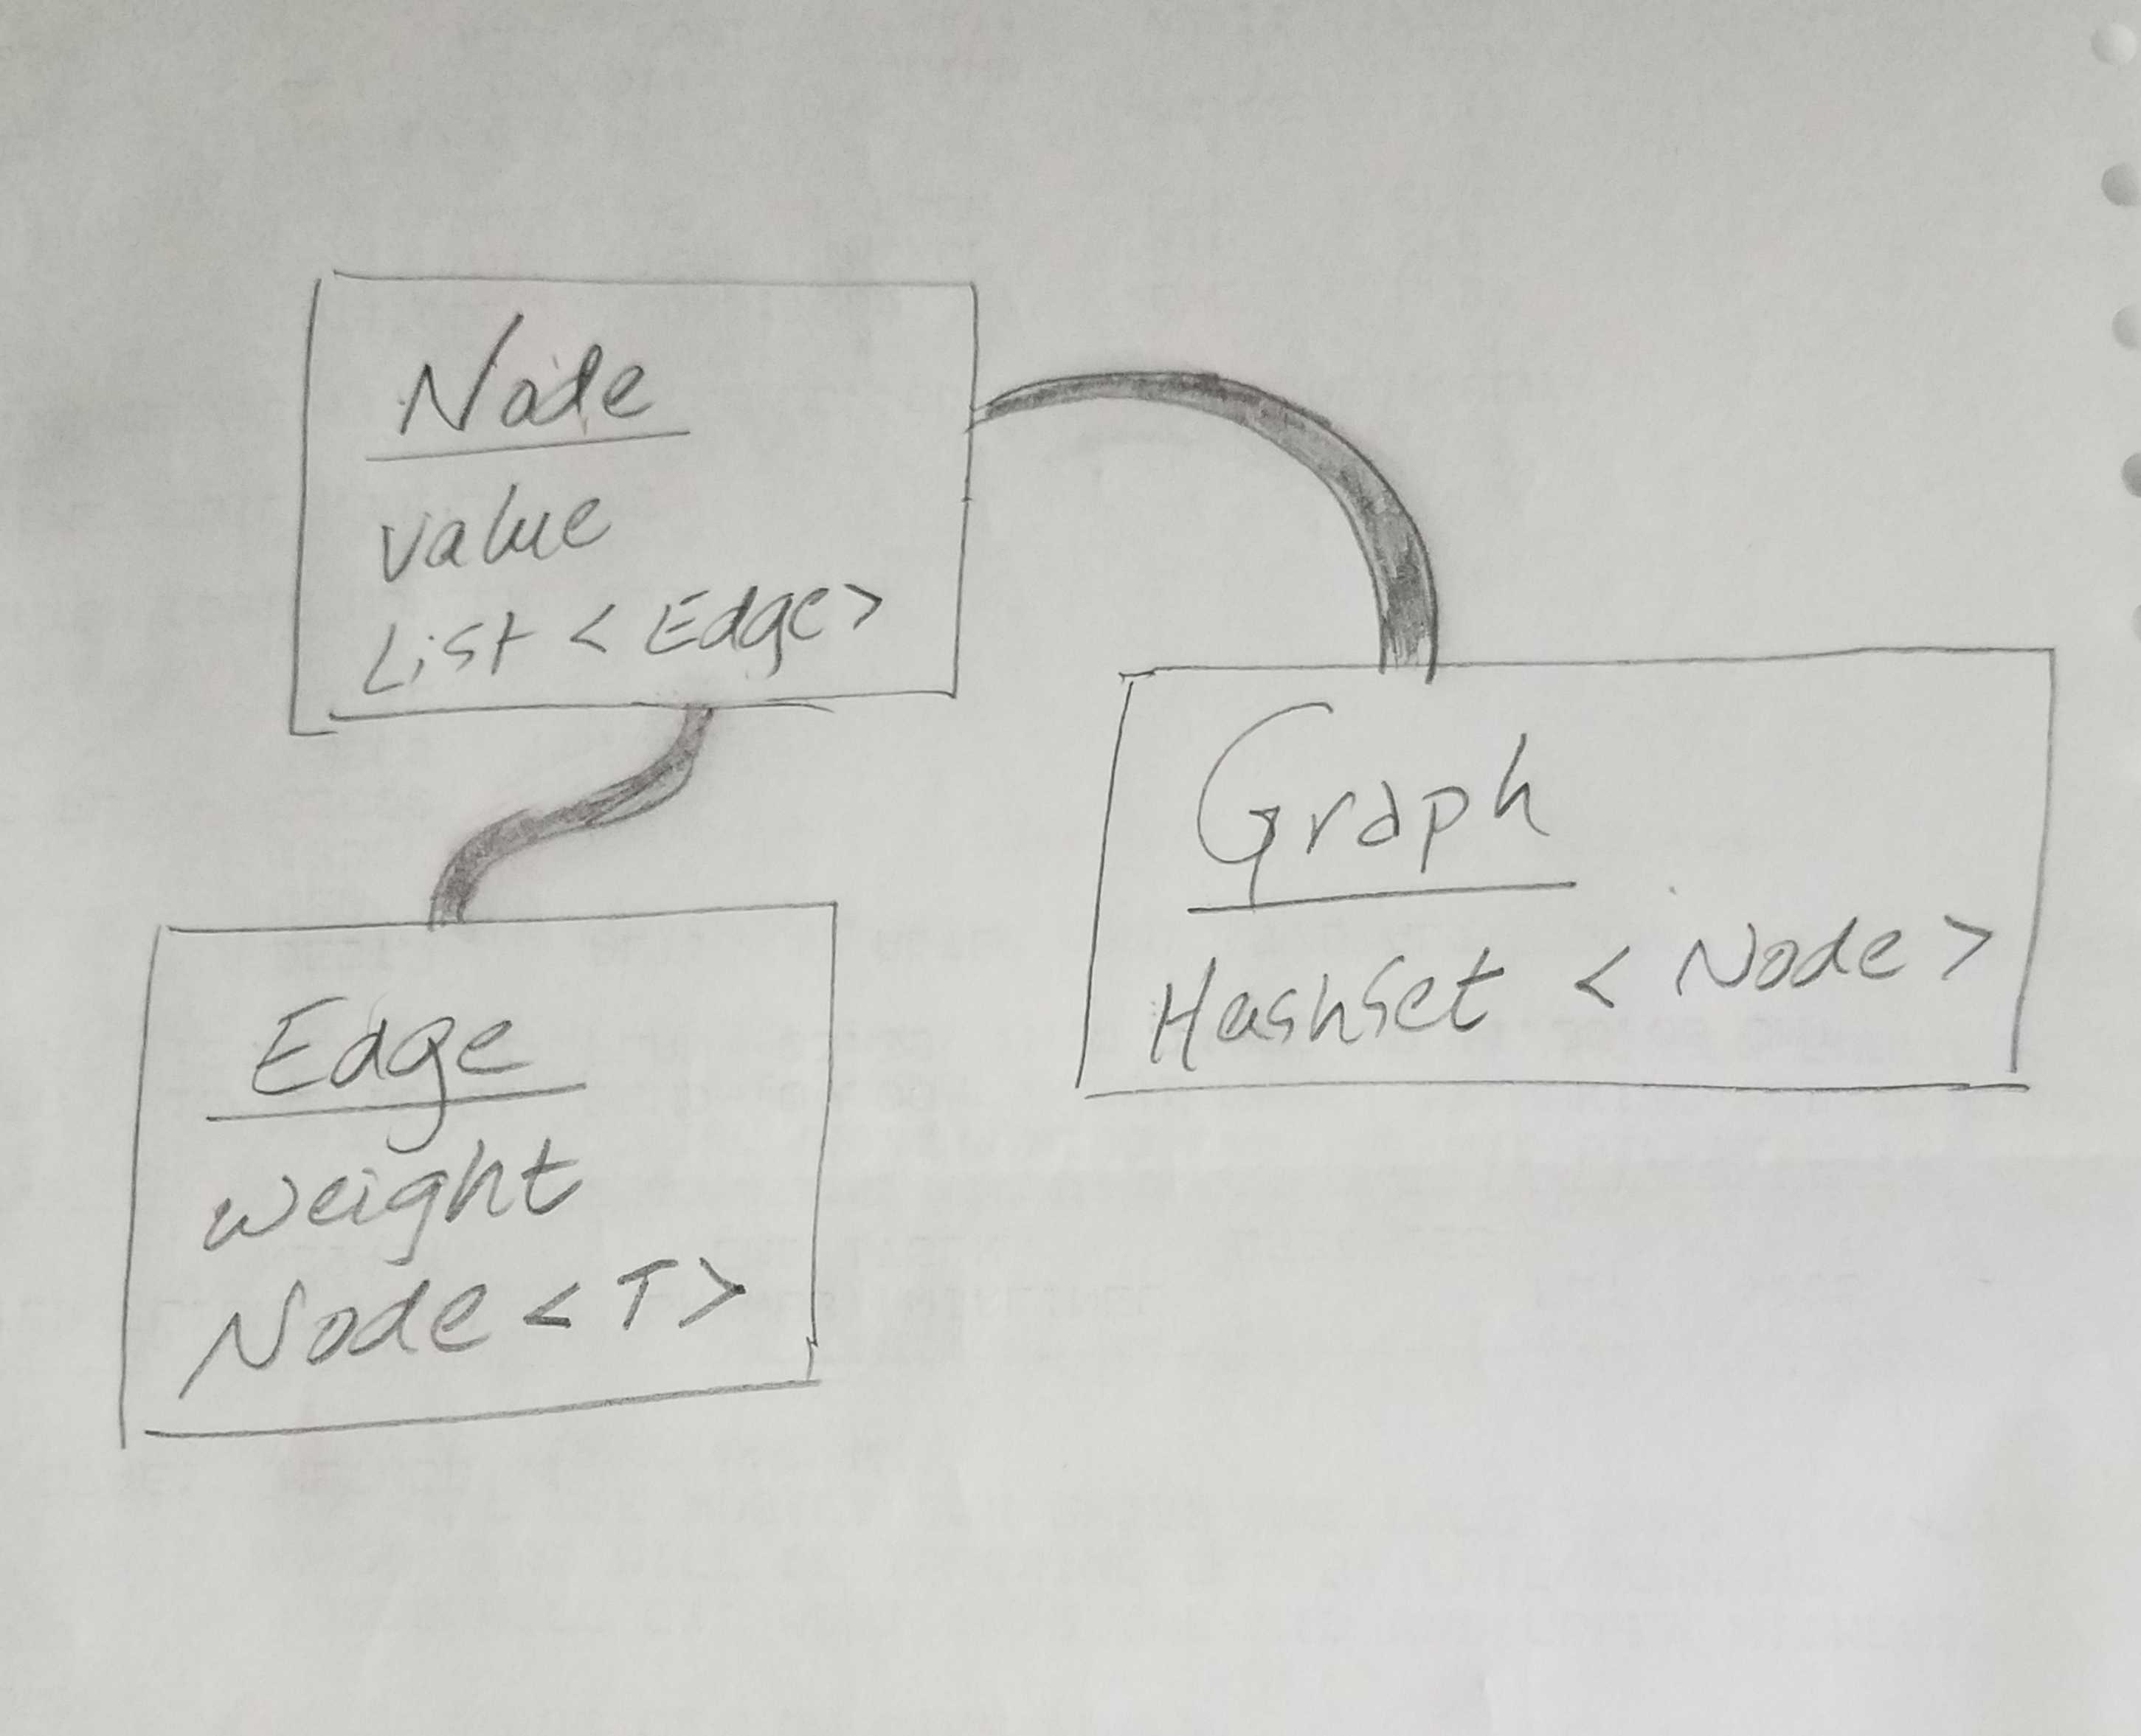 Node
value
List < Edge >
Graph
HashSet < Node >
Edge
weight
Node < T >